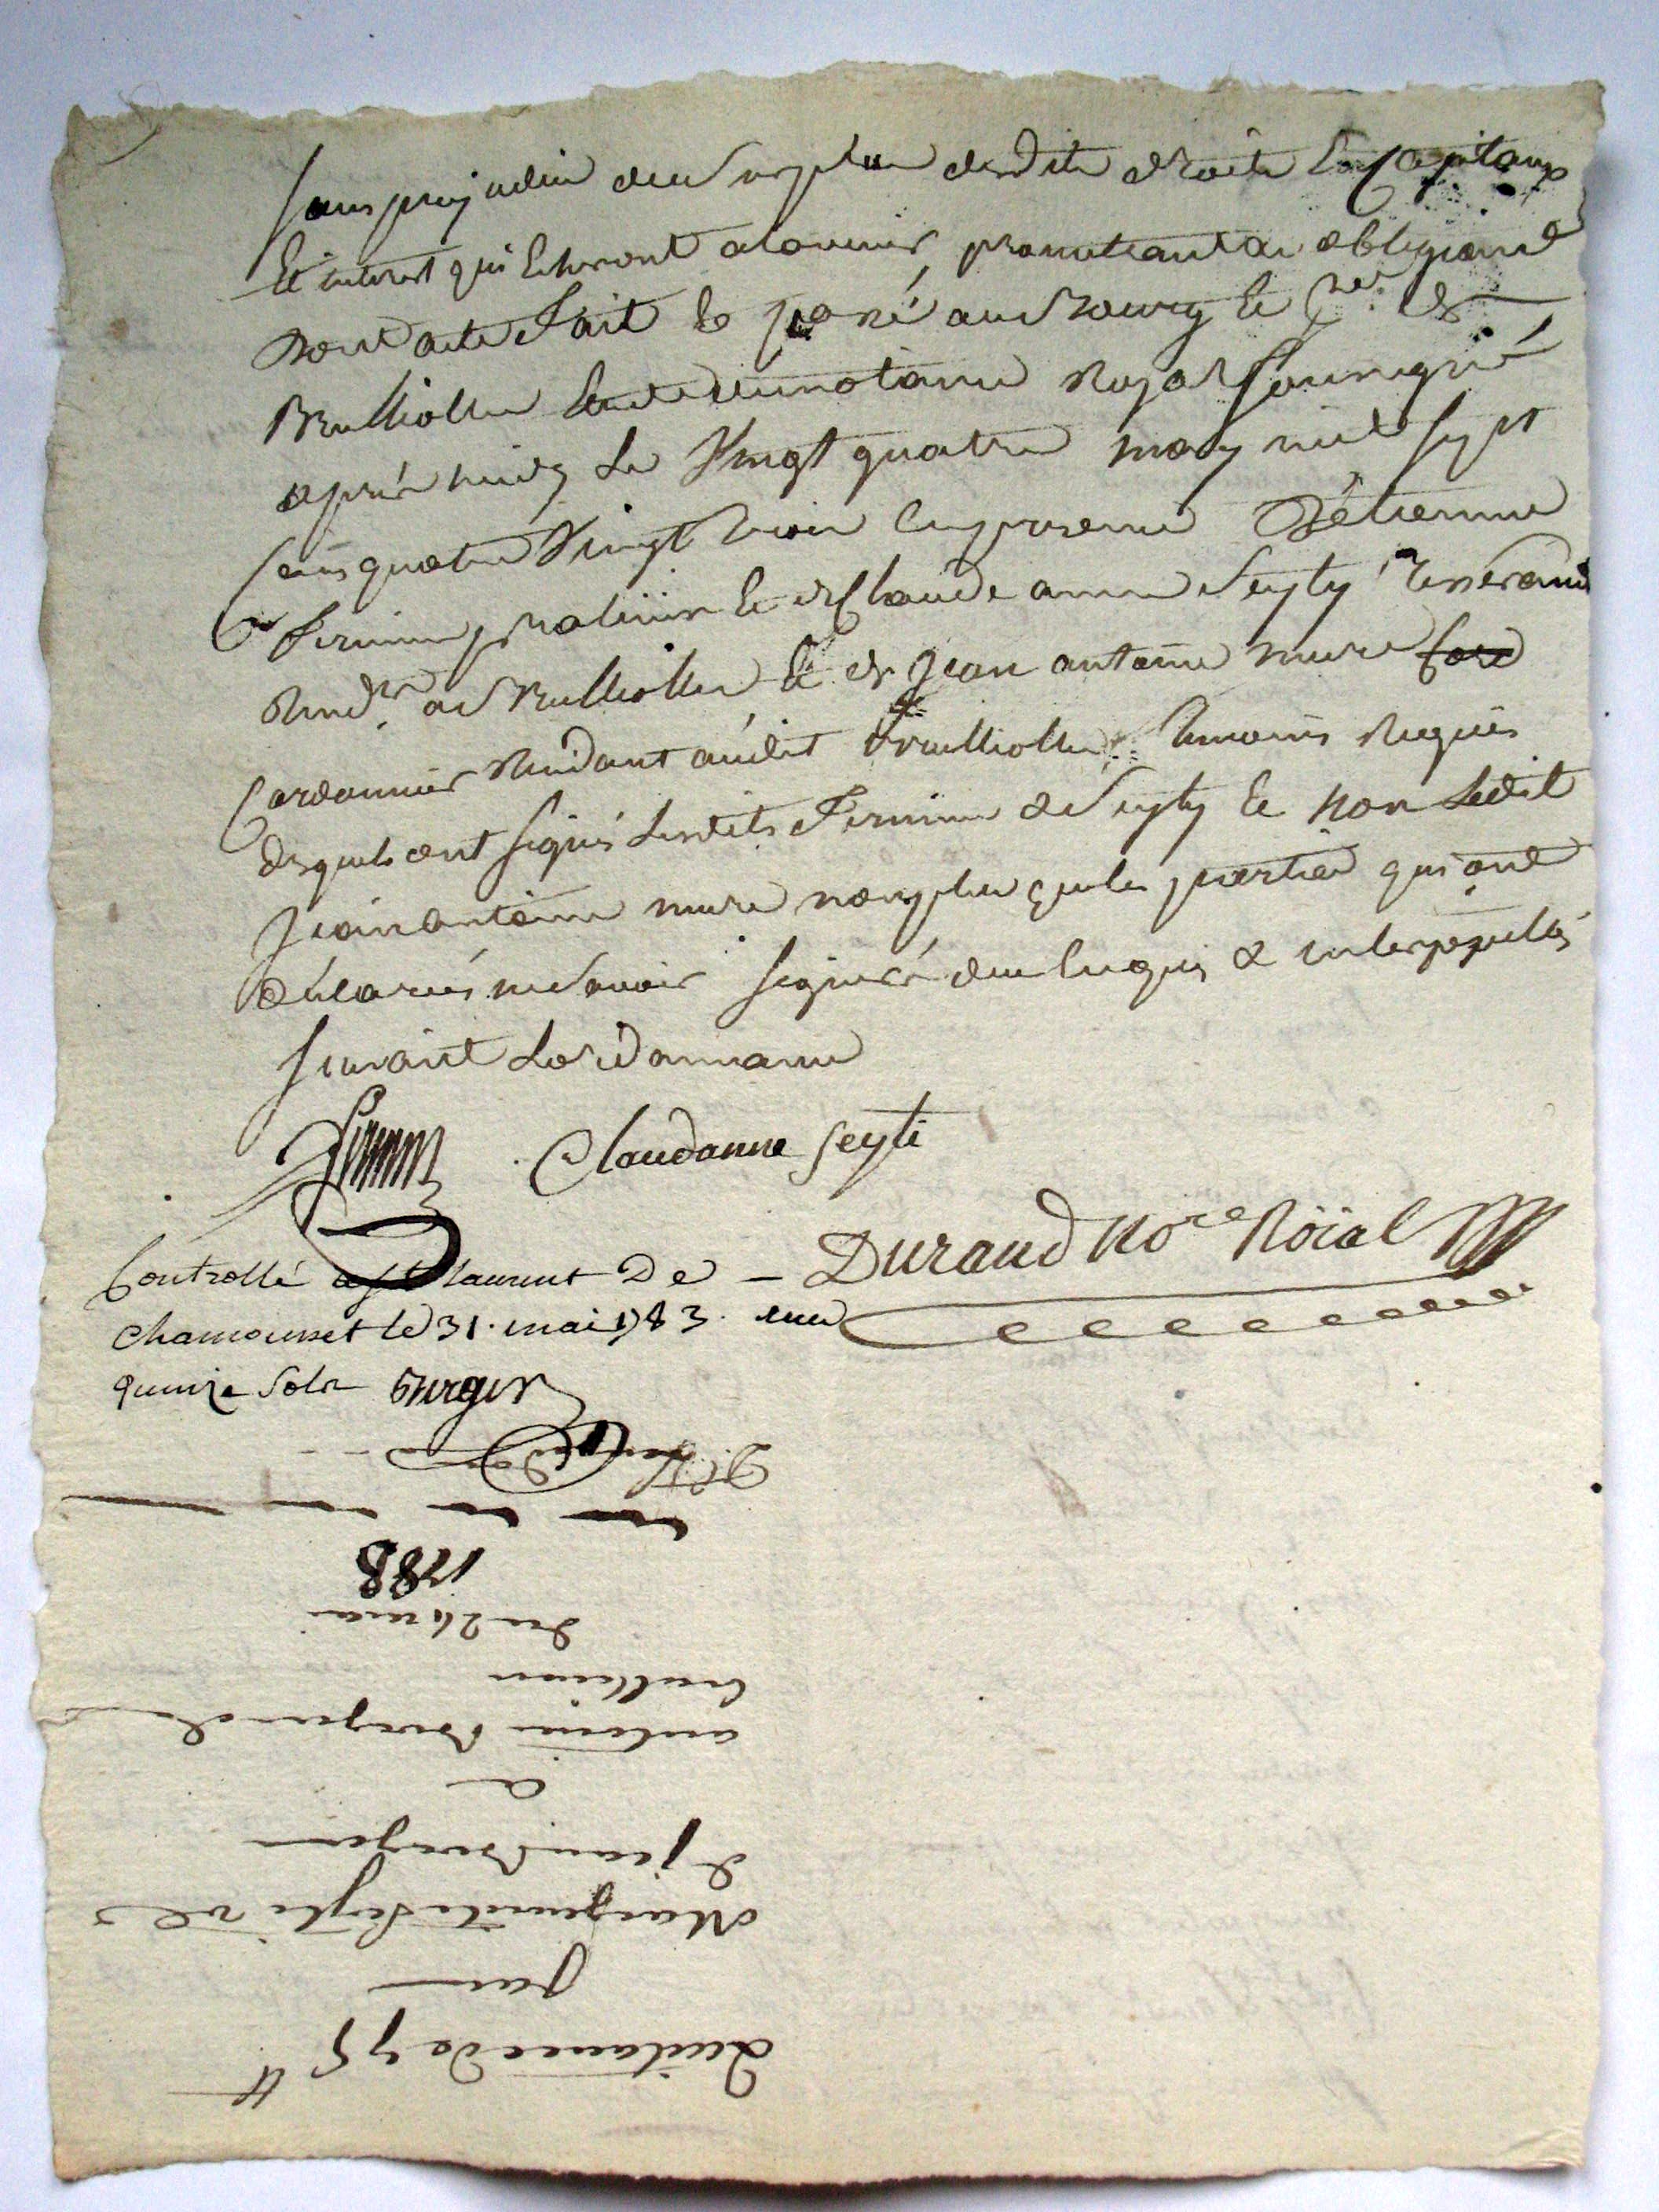 sans prejudice du surplus desdits droits en capitaux
et interest qui echeront alavenir, promettant &c obligeant
dont acte fait & passé au Bourg &
Brullioles notaire Royal soussigné
après midy Le Vingt quatre may mil sept
cens quatre Vingt trois en presence d'étienne
Firmin praticien & de Claude anne Seyty Tisserand
a Brullioles & de Jean antoine mure
Cordonnier Residant audit Brullioles Temoins Requis
desquels ont signés Lesdits Firmin & Seyty & non Ledit
Jean antoine mure non plus que les parties qui ont
declarés ne savoir signer de ce enquis & interpellés
suivant Lordonnance
Firmin Claudanne Seyti
Durand No.re Röial
Controllé a St Laurent De
Chamousset le 31. mai 1783. reçu
quinze sols
Quitance de 75 ₶
par
Marguerite Seyti ve
de jean
a
antoine
du 24 mai
1783